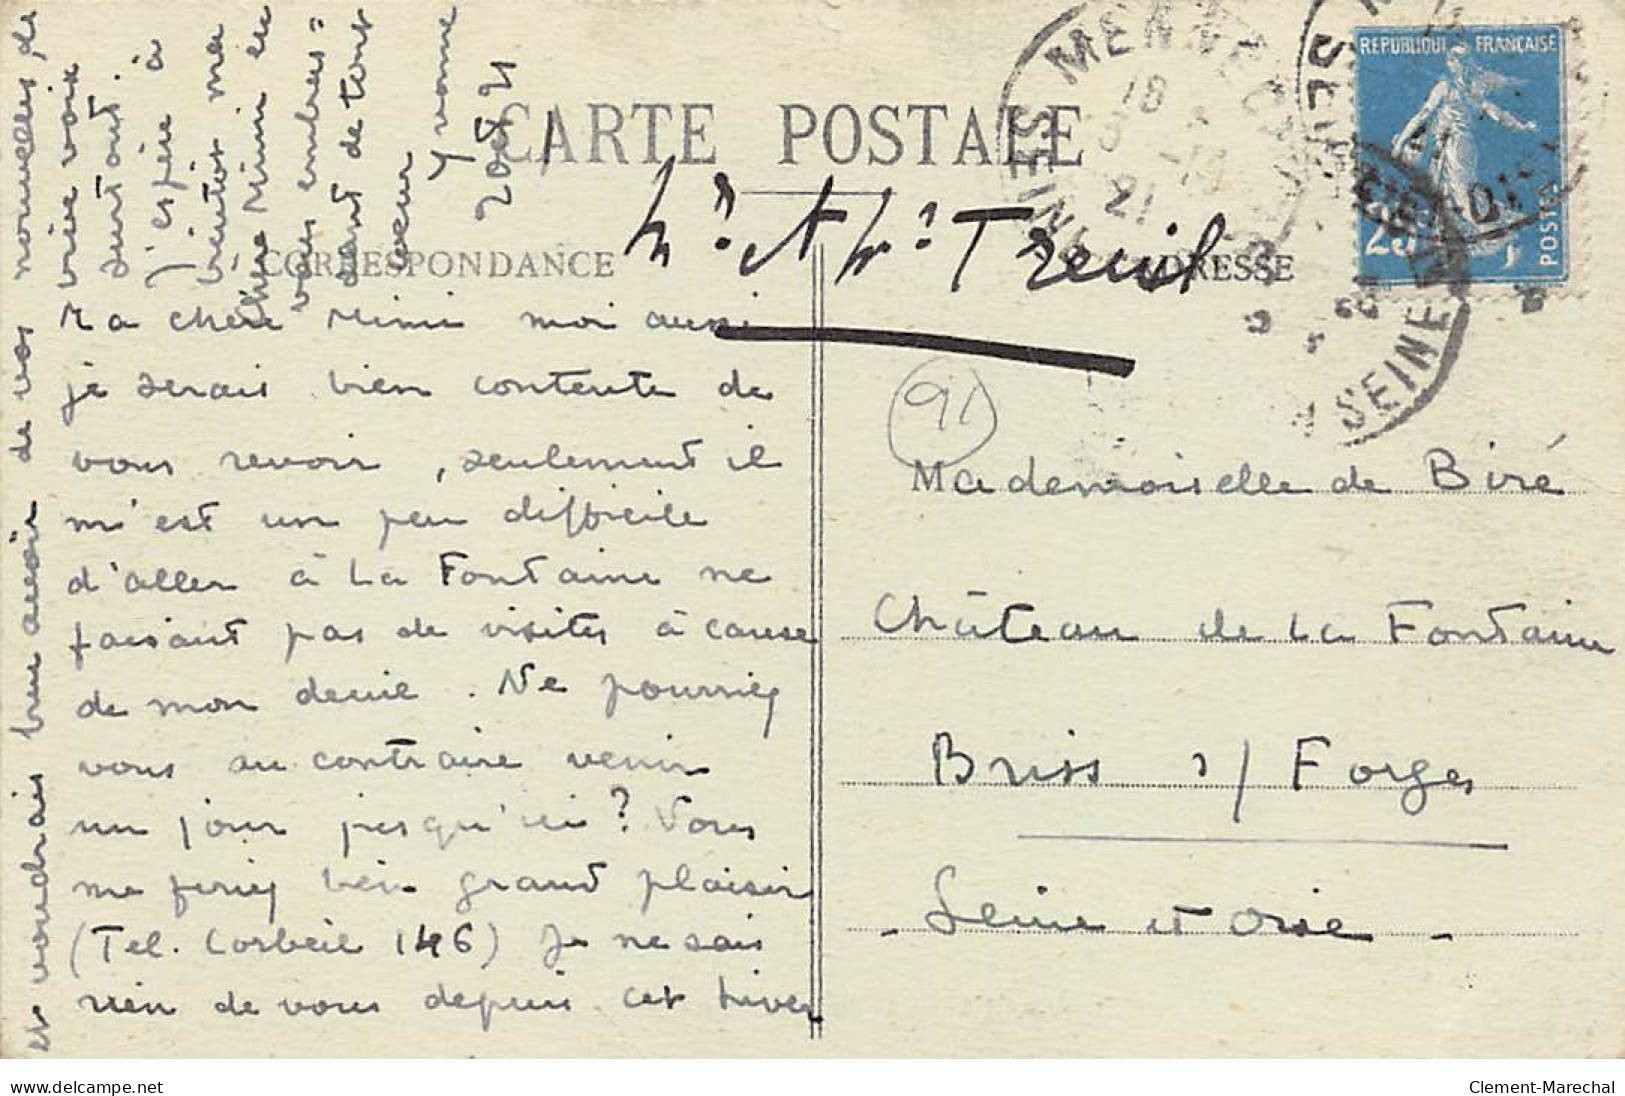 CARTE POSTALE
CORRESPONDANCE
ADRESSE
REPUBLIQUE FRANÇAISE
POSTES
25
MENNECY
SEINE
18
21
SEINE
91
Treuil
Ma chère Mimi moi aussi
je serais bien contente de
vous revoir, seulement il
m'est un peu difficile
d'aller à La Fontaine ne
faisant pas de visites à cause
de mon deuil. Ne pourriez
vous au contraire venir
un jour jusqu'ici? Vous
me feriez bien grand plaisir
(Tel. Corbeil 146) Je ne sais
rien de vous depuis cet hiver
et voudrais bien avoir de vos nouvelles de
vive voix
surtout.
J'espère à
bientôt ma
chère Mimi et
vous embras=
sant de tout
cœur
Yvonne
2 Oct 21
Mademoiselle de Biré
Château de La Fontaine
Briss s/ Forges
- Seine et Oise -
www.delcampe.net
Clement-Marechal